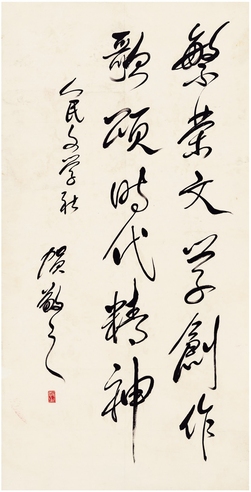 繁荣文学創作
歌颂時代精神
人民文学社
贺敬之